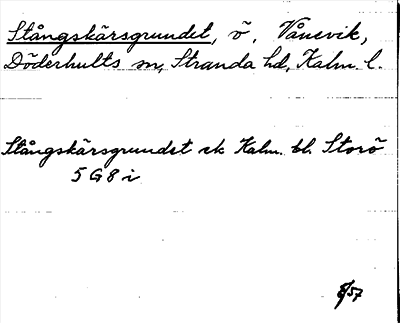 Stångskärsgrundet, ö, Vånevik,
Döderhults sn, Stranda hd, Kalm. l.
Stångskärsgrundet ek Kalm. bl. Storö
5 G 8 i
8/57